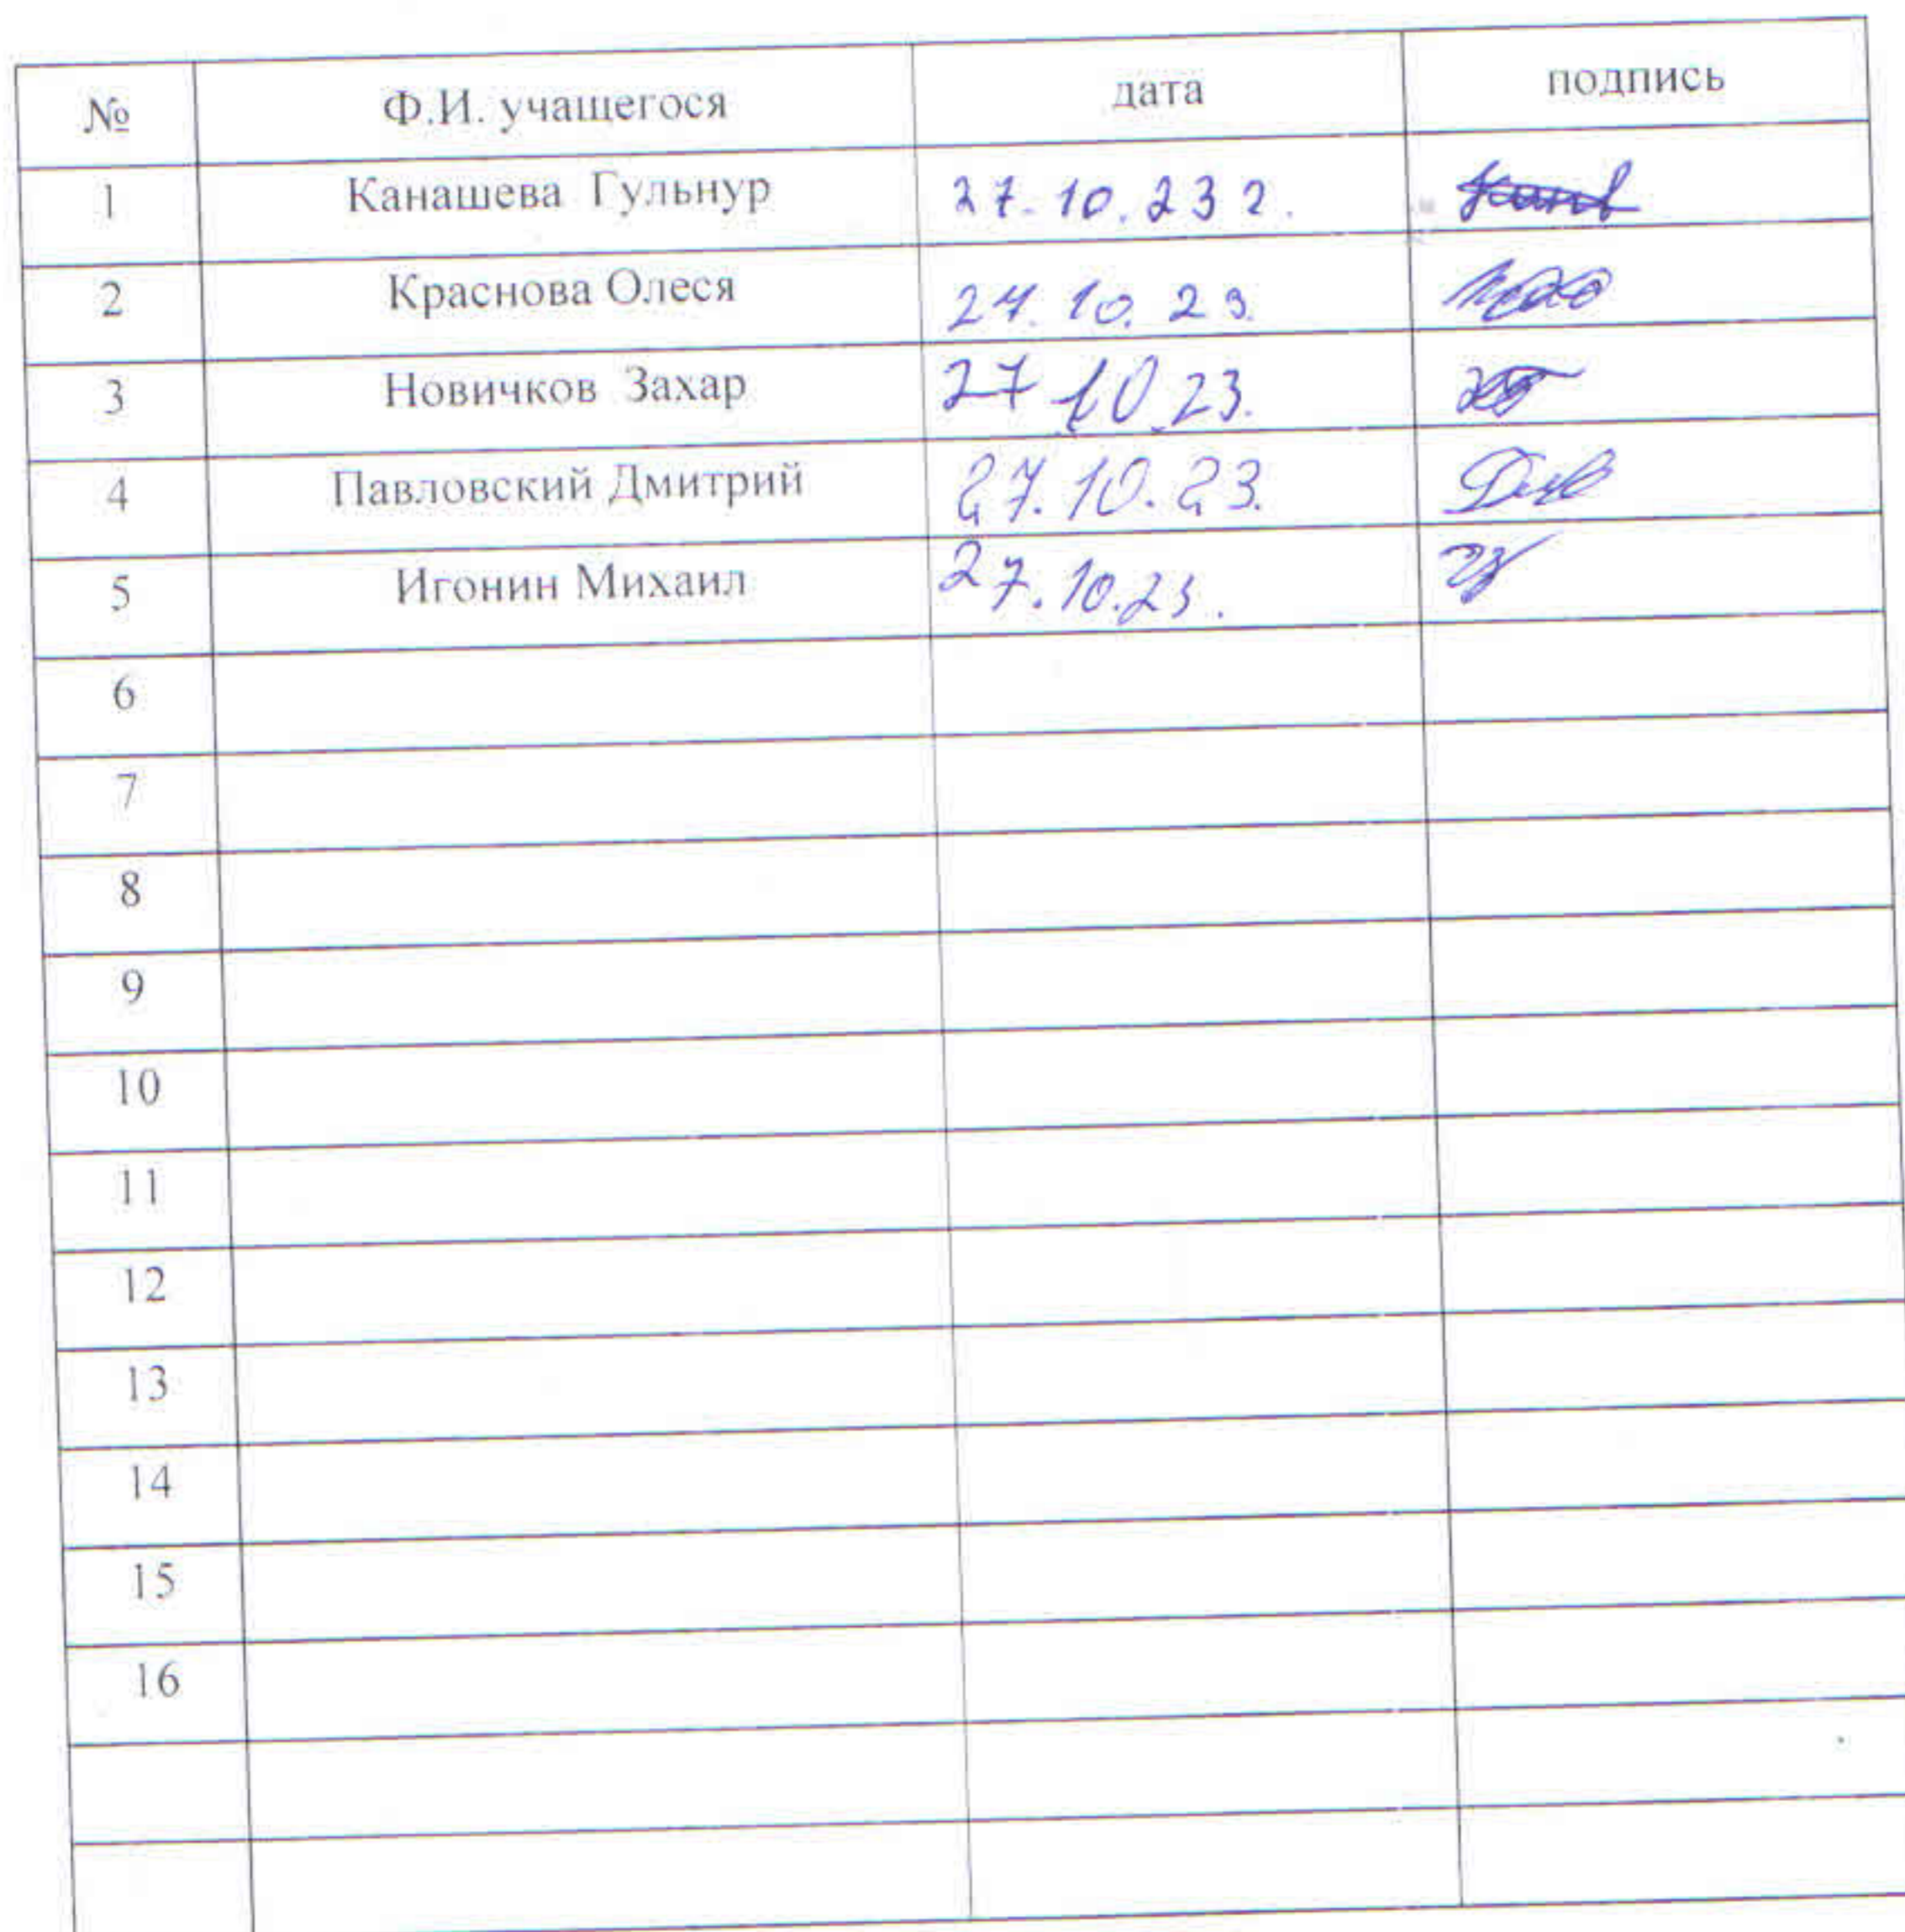 № Ф.И. учащегося дата подпись
1 Канашева Гульнур 27.10.23 г.
2 Краснова Олеся 27.10.23.
3 Новичков Захар 27.10.23.
4 Павловский Дмитрий 27.10.23.
5 Игонин Михаил 27.10.23.
6
7
8
9
10
11
12
13
14
15
16